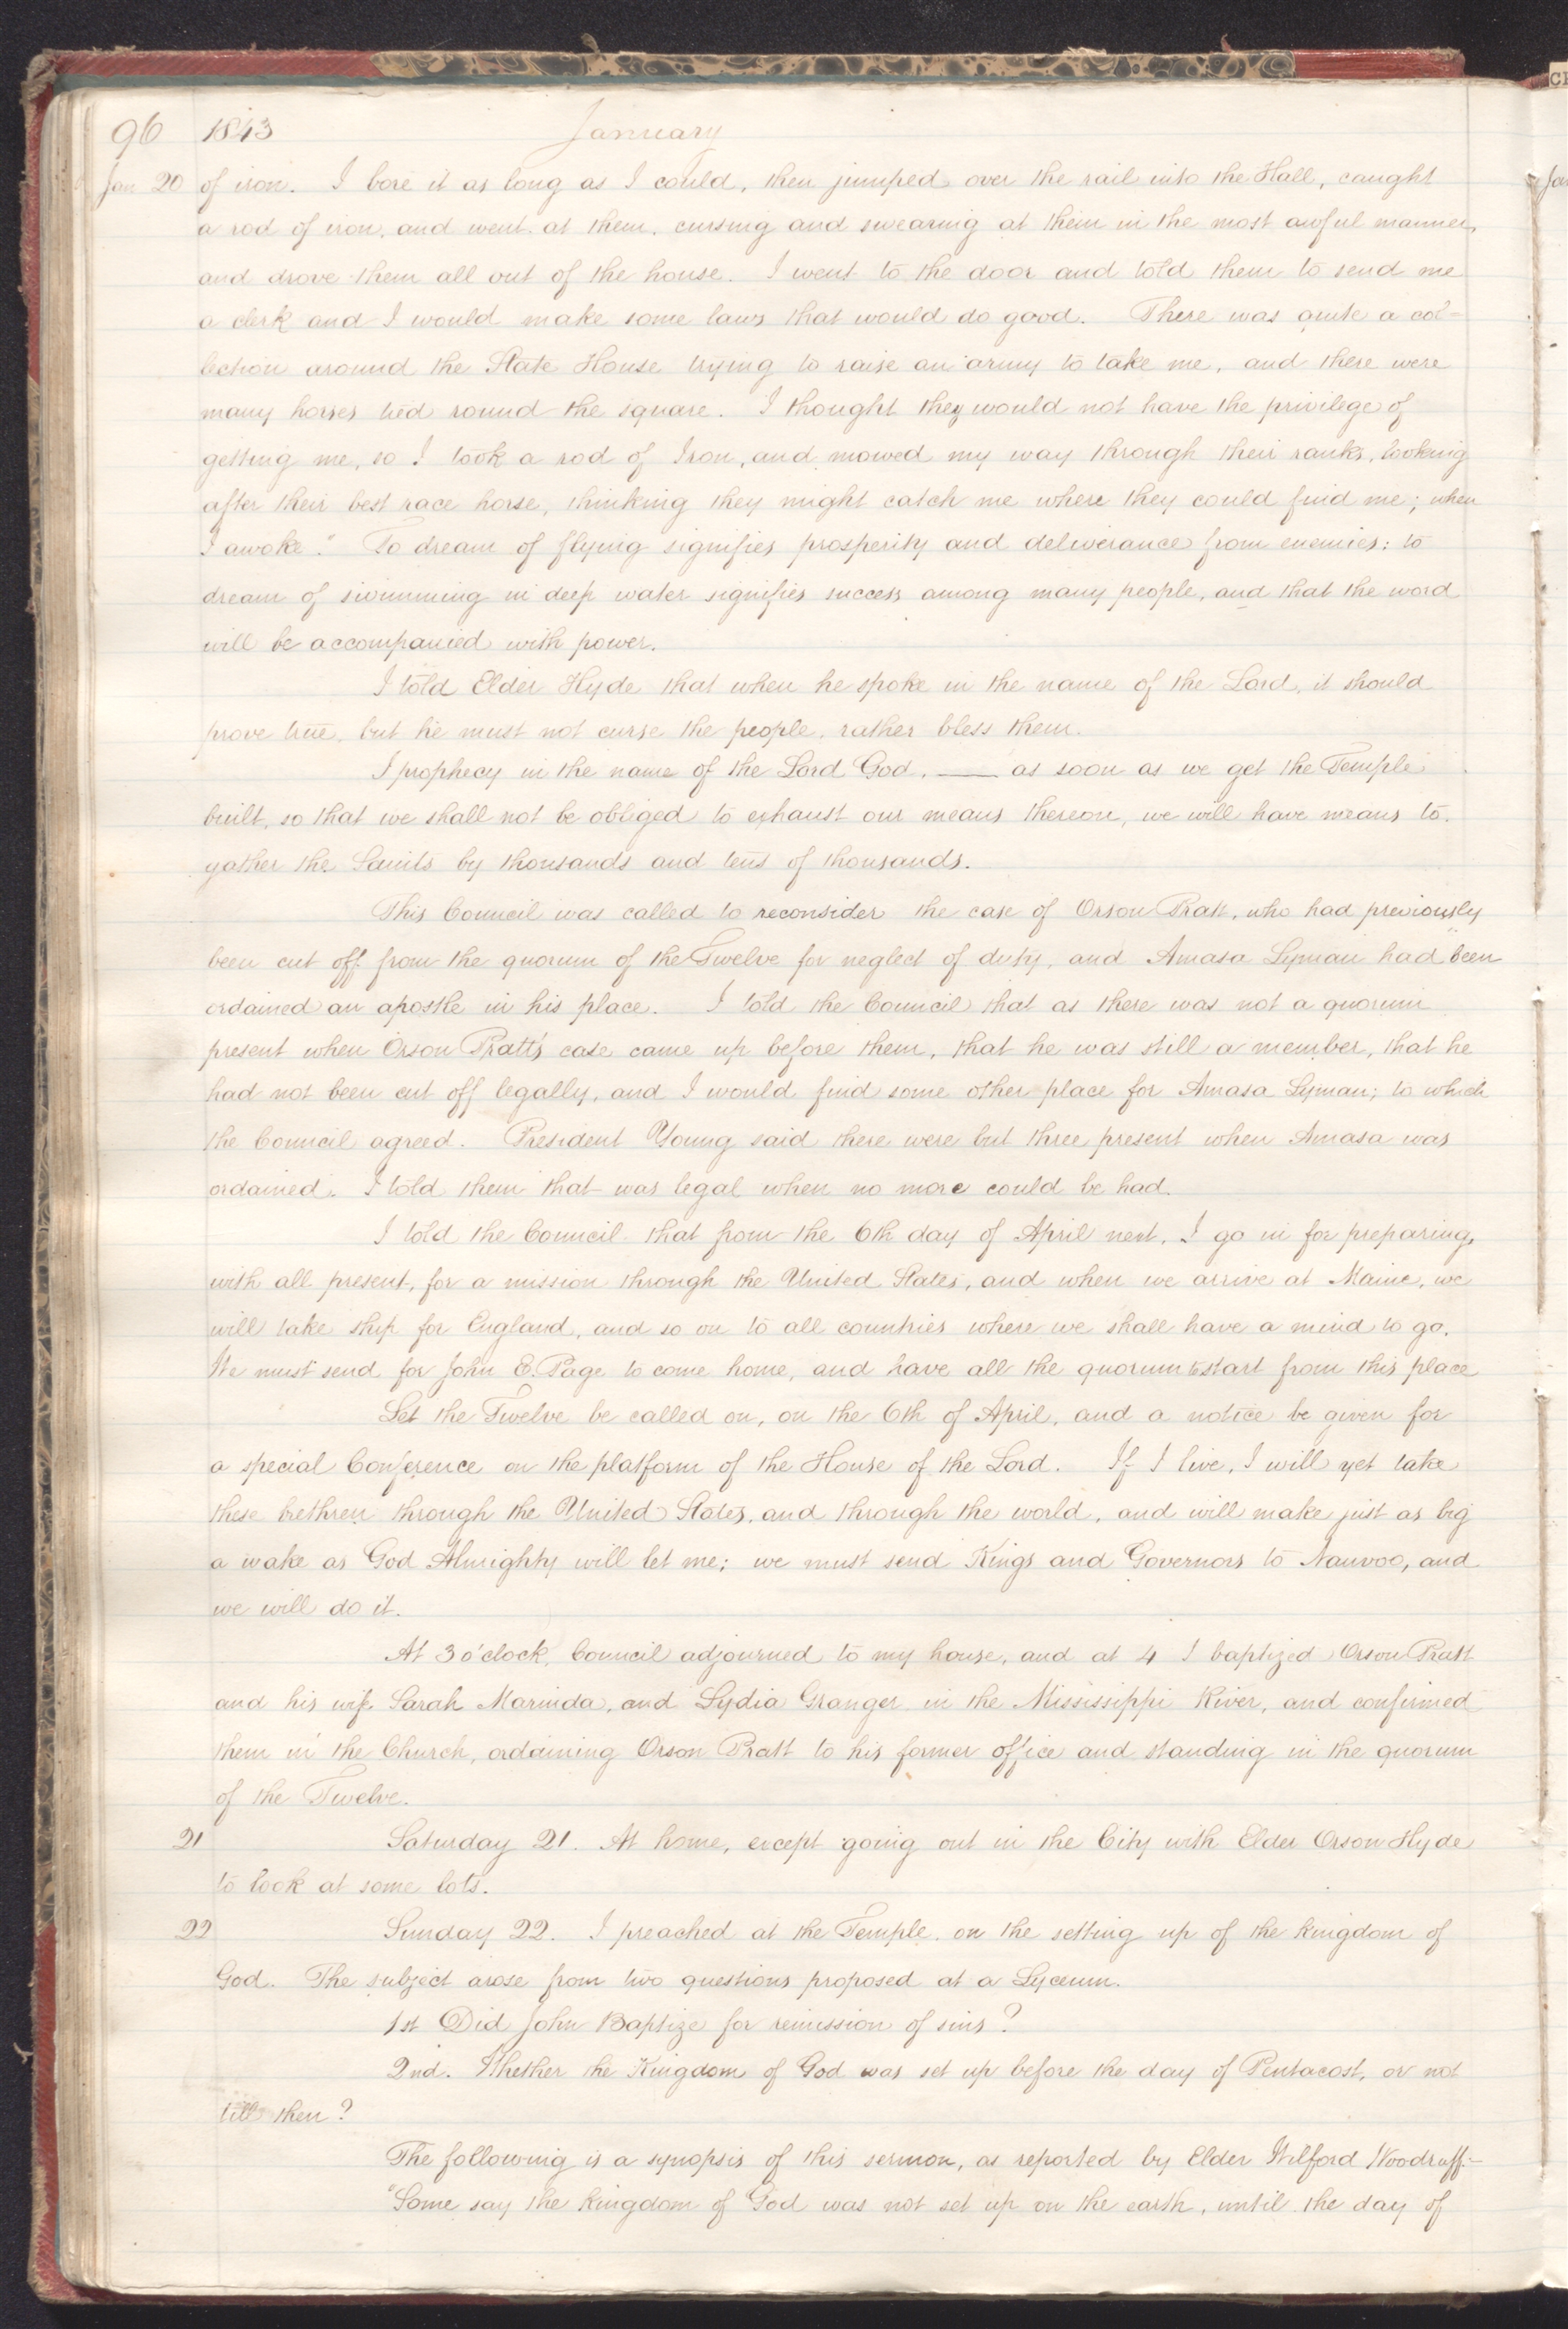 96 1843 January
Jan 20 of iron. I bore it as long as I could, then jumped over the rail into the Hall, caught
a rod of iron, and went at them, cursing and swearing at them in the most awful manner,
and drove them all out of the house. I went to the door and told them to send me
a clerk and I would make some laws that would do good. There was quite a col=
lection around the State House trying to raise an army to take me, and there were
many horses tied round the square. I thought they would not have the privilege of
getting me, so I took a rod of Iron, and mowed my way through their ranks, looking
after their best race horse, thinking they might catch me where they could find me; when
I awoke." To dream of flying signifies prosperity and deliverance from enemies: to
dream of swimming in deep water signifies success among many people, and that the word
will be accompanied with power.
I told Elder Hyde that when he spoke in the name of the Lord, it should
prove true, but he must not curse the people, rather bless them.
I prophecy in the name of the Lord God, —— as soon as we get the Temple
built, so that we shall not be obliged to exhaust our means thereon, we will have means to
gather the Saints by thousands and tens of thousands.
This Council was called to reconsider the case of Orson Pratt, who had previously
been cut off from the quorum of the Twelve for neglect of duty, and Amasa Lyman had been
ordained an apostle in his place. I told the Council that as there was not a quorum
present when Orson Pratt's case came up before them, that he was still a member, that he
had not been cut off legally, and I would find some other place for Amasa Lyman; to which
the Council agreed. President Young said there were but three present when Amasa was
ordained. I told them that was legal when no more could be had.
I told the Council that from the 6th day of April next, I go in for preparing,
with all present, for a mission through the United States, and when we arrive at Maine, we
will take ship for England, and so on to all countries where we shall have a mind to go.
We must send for John E. Page to come home, and have all the quorum to start from this place
Let the Twelve be called on, on the 6th of April, and a notice be given for
a special Conference on the platform of the House of the Lord. If I live, I will yet take
these brethren through the United States, and through the world, and will make just as big
a wake as God Almighty will let me; we must send Kings and Governors to Nauvoo, and
we will do it.
At 3 o'clock, Council adjourned to my house, and at 4 I baptized Orson Pratt
and his wife Sarah Marinda, and Lydia Granger in the Mississippi River, and confirmed
them in the Church, ordaining Orson Pratt to his former office and standing in the quorum
of the Twelve.
21 Saturday 21. At home, except going out in the City with Elder Orson Hyde
to look at some lots.
22 Sunday 22. I preached at the Temple, on the setting up of the kingdom of
God. The subject arose from two questions proposed at a Lyceum.
1st Did John Baptize for remission of sins?
2nd. Whether the Kingdom of God was set up before the day of Pentacost, or not
till then?
The following is a synopsis of this sermon, as reported by Elder Wilford Woodruff:—
"Some say the kingdom of God was not set up on the earth, until the day of